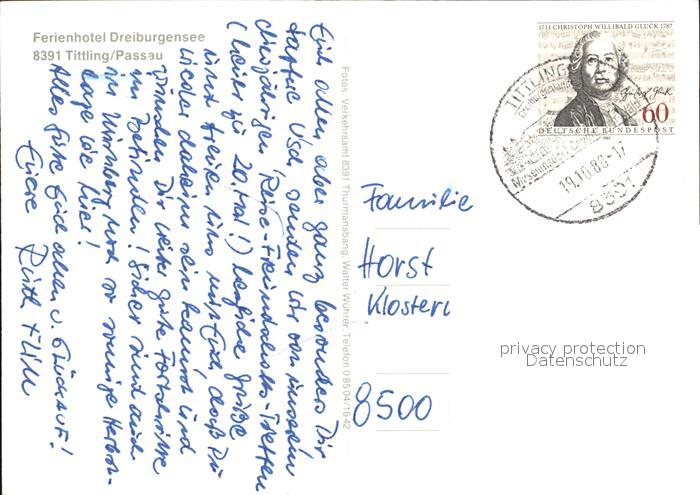 Ferienhotel Dreiburgensee
8391 Tittling/Passau
Euch allen, aber ganz besonders Dir
tapfre Usch, senden wir von unserem
diesjährigen Reise-Freundschafts-Treffen
(heuer zu 20. Mal!) herzliche Grüße
und freuen uns mit Euch, daß Du
wieder daheim sein kannst und
wünschen Dir weiter gute Fortschritte
im Befinden! Sicher sind auch
in Nürnberg noch so sonnige Herbst-
tage wie hier!
Alles Gute Euch allen u. Glückauf!
Eure Ruth +
Fotos: Verkehrsamt 8391 Thurmansbang, Walter Wührer, Telefon 0 85 04/16 42
1714 CHRISTOPH WILLIBALD GLUCK 1787
60
DEUTSCHE BUNDESPOST
TITTLING
Museumsdorf
19.10.88-17
8391
Familie
Horst
Klostern
8500
privacy protection
Datenschutz